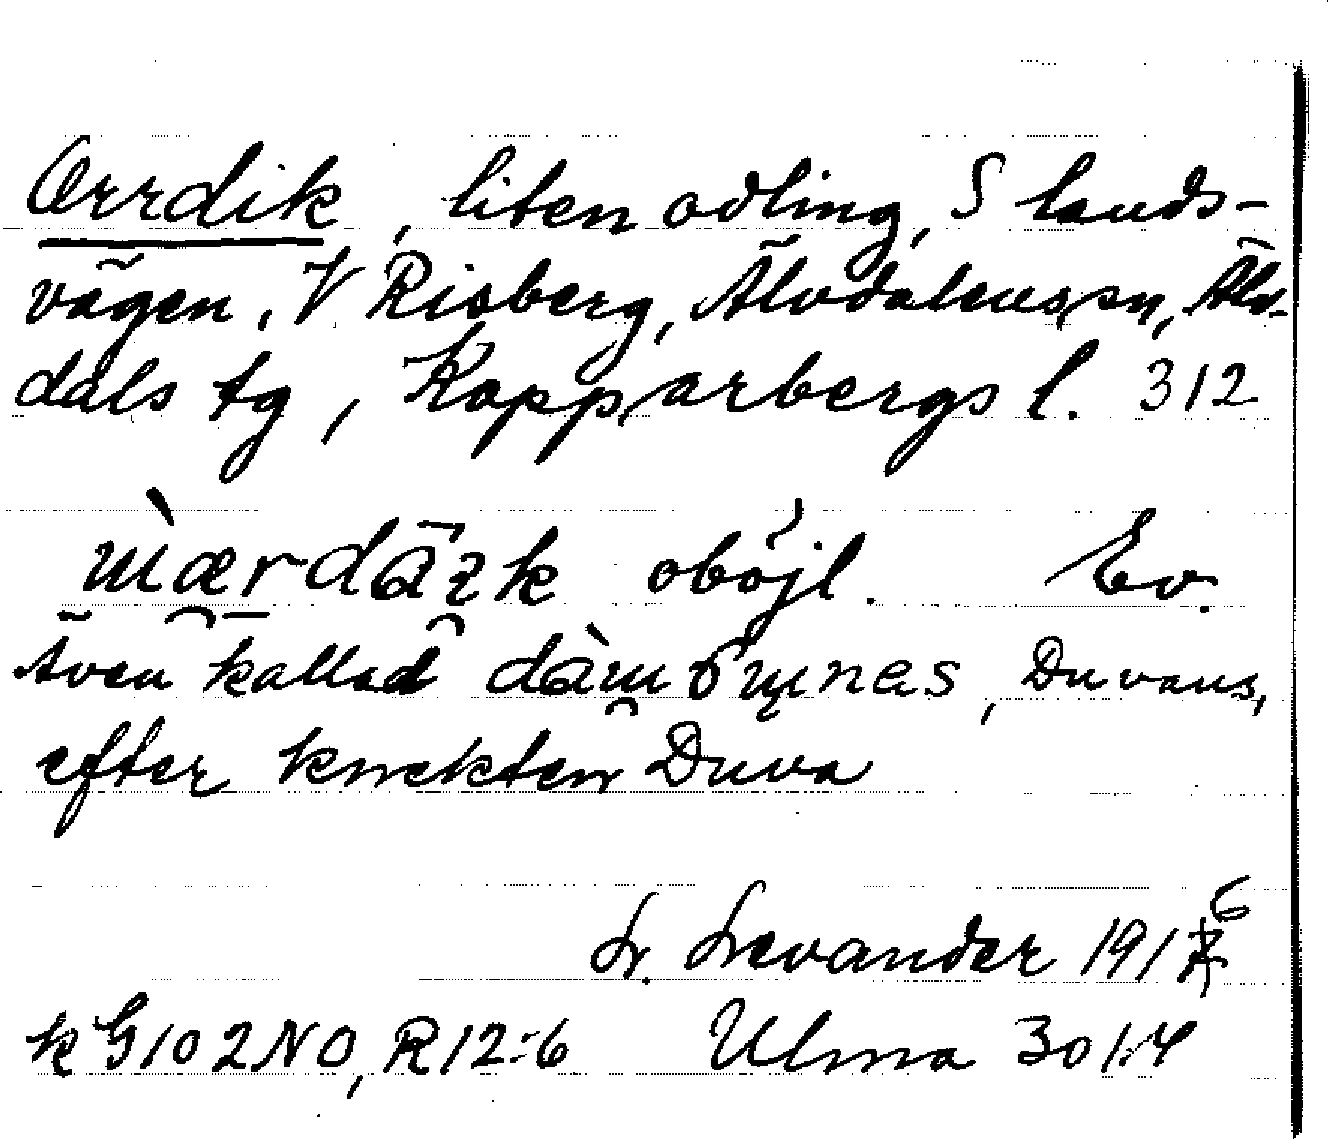 Œrrdik, liten odling, S lands-
vägen, V Risberg, Älvdalens sn, Älv-
dals tg, Kopparbergs l. 312
oböjl. Ev.
Även kallad Duvans,
efter knekten Duva
L. Levander 1916
k G102NO, R12:6 Ulma 301:4